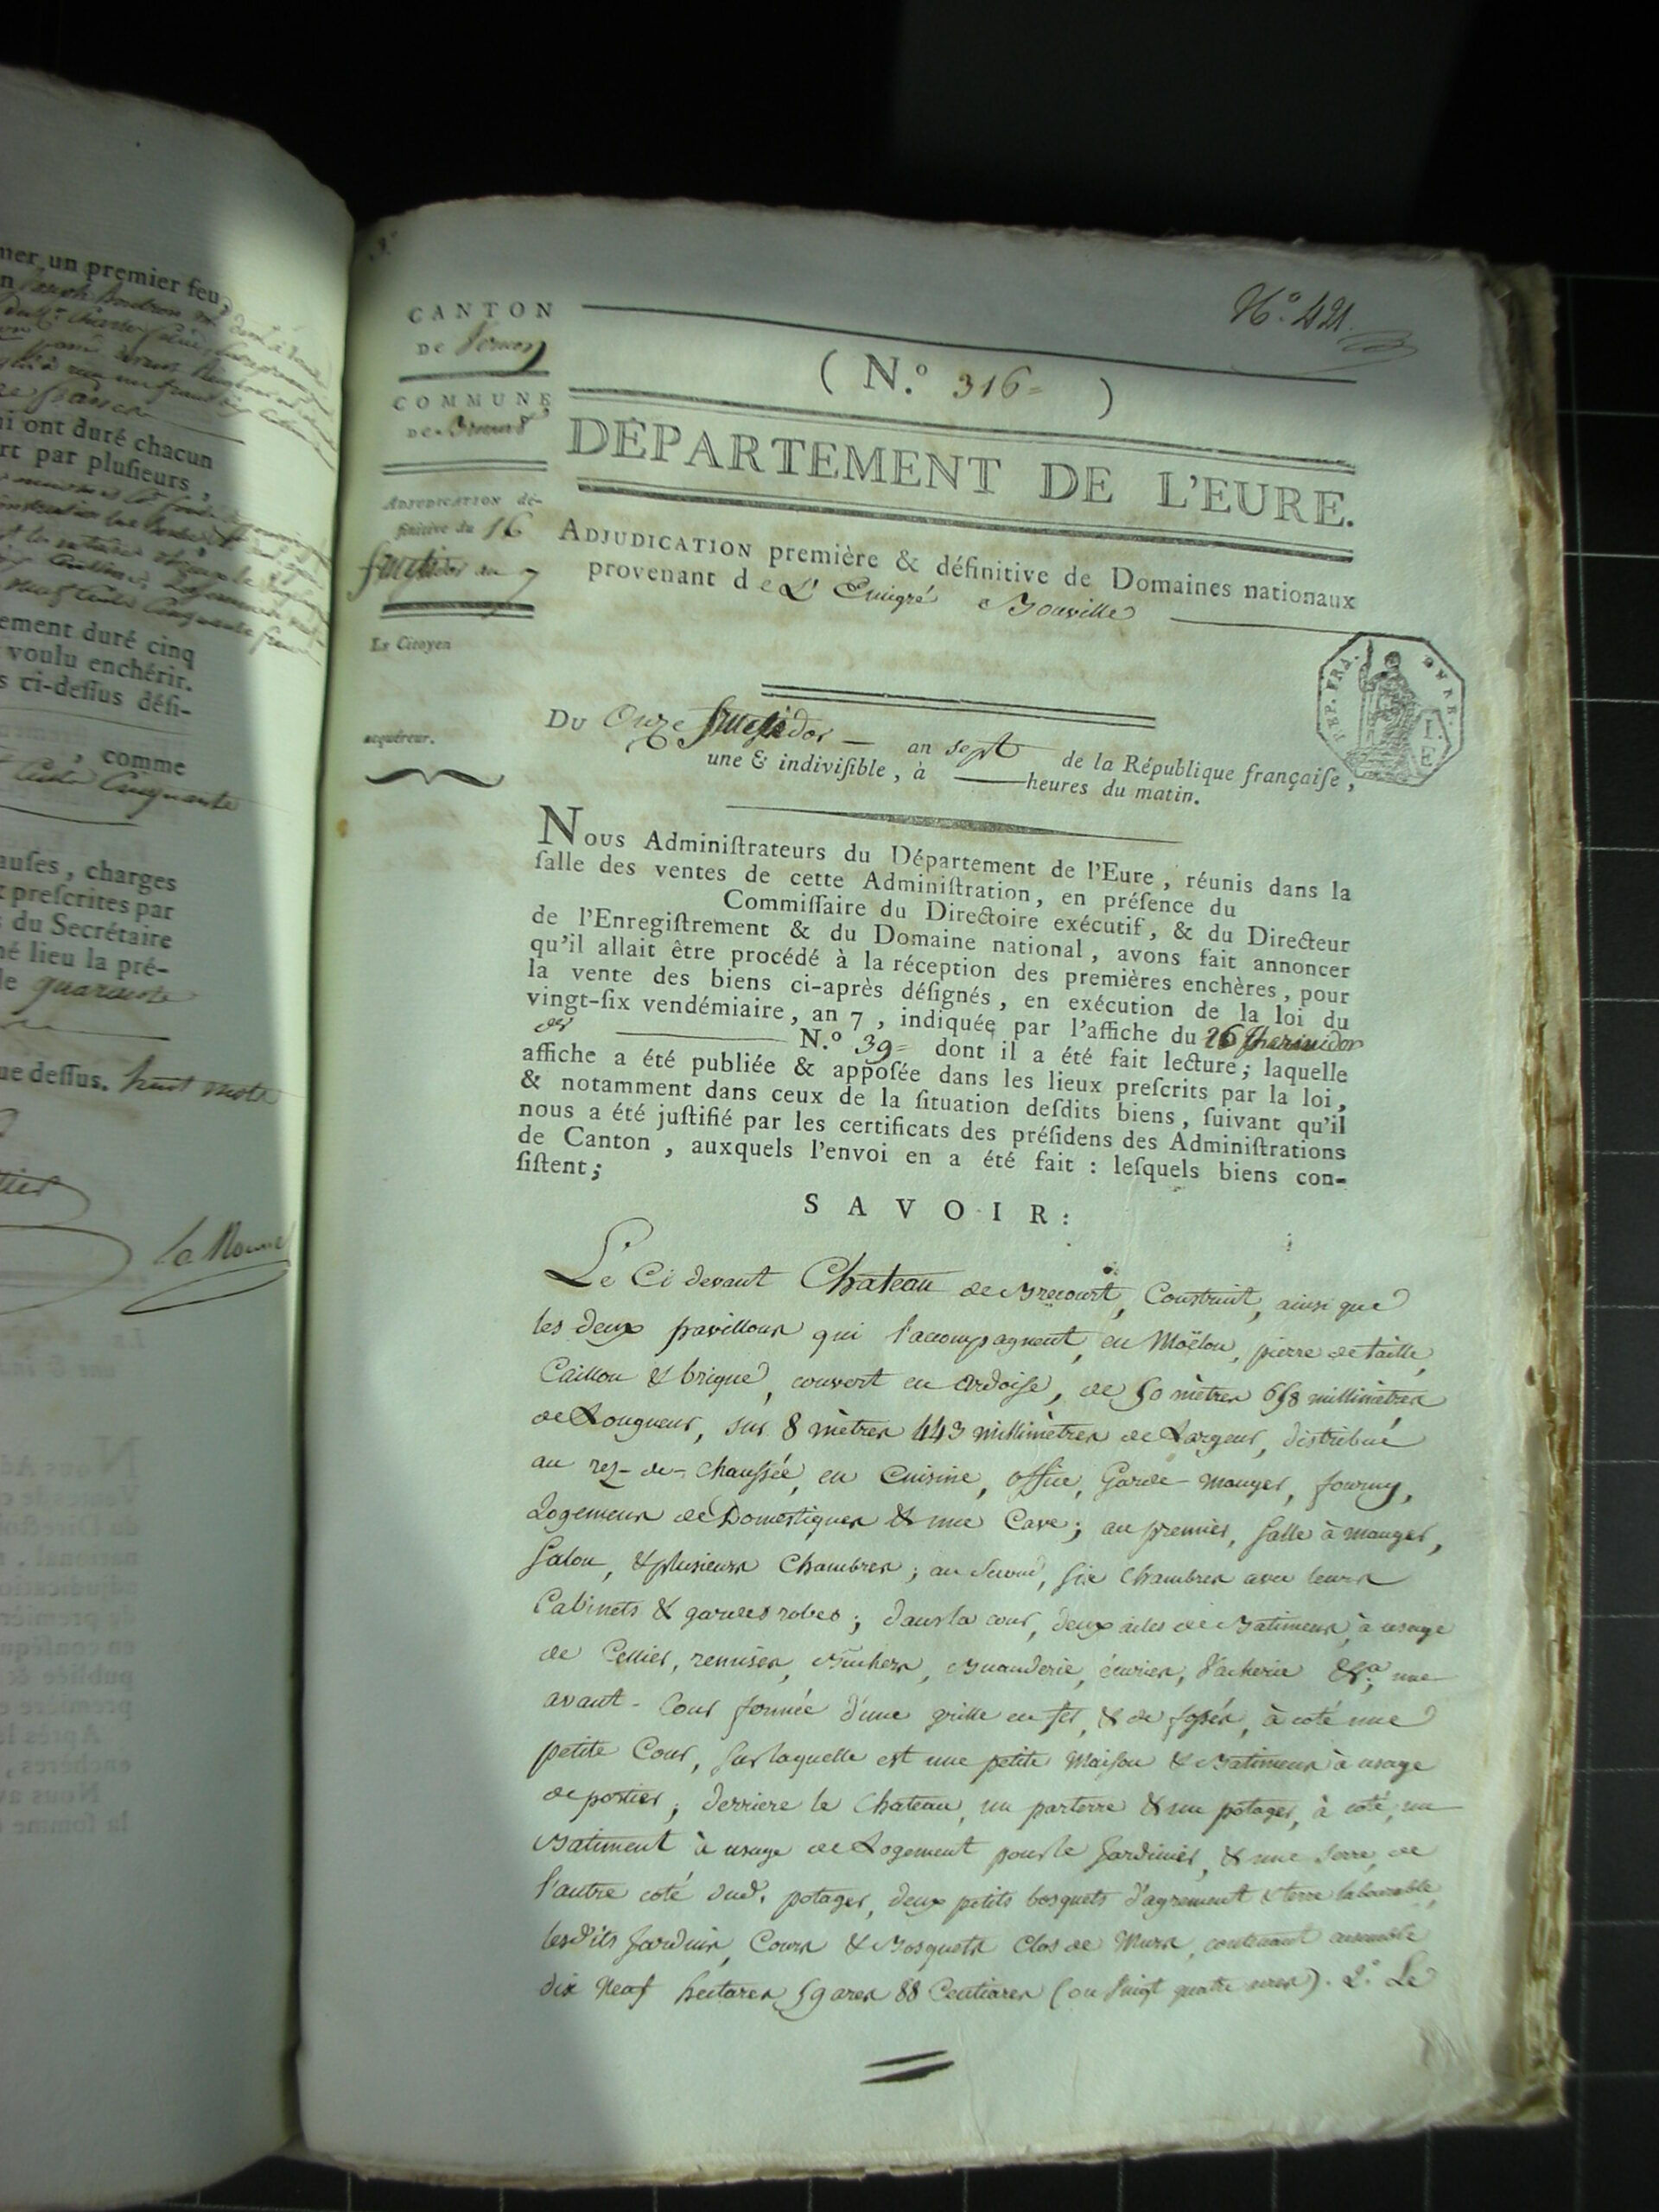 mer un premier feu,
i ont duré chacun
rt par pluſieurs,
ement duré cinq
voulu enchérir.
s ci-deſſus défi-
, comme
Cinquante
auſes, charges
preſcrites par
du Secrétaire
né lieu la pré-
le quarante
ue deſſus. huit mots
N.º 421.
CANTON
DE Vernon
( N.º 316 )
COMMUNE
DE
DÉPARTEMENT DE L'EURE.
ADJUDICATION dé-
finitive du 16
fructidor an 7
ADJUDICATION première & définitive de Domaines nationaux
provenant de L'Emigré Jouville
LE Citoyen
acquéreur.
REP. FRA.
DU Onze fructidor — an sept de la République françaiſe,
une & indiviſible, à —— heures du matin.
NOUS Adminiſtrateurs du Département de l'Eure, réunis dans la
ſalle des ventes de cette Adminiſtration, en préſence du
Commiſſaire du Directoire exécutif, & du Directeur
de l'Enregiſtrement & du Domaine national, avons fait annoncer
qu'il allait être procédé à la réception des premières enchères, pour
la vente des biens ci-après déſignés, en exécution de la loi du
vingt-ſix vendémiaire, an 7, indiquée par l'affiche du 26 Thermidor
der —— N.º 39 dont il a été fait lecture; laquelle
affiche a été publiée & appoſée dans les lieux preſcrits par la loi,
& notamment dans ceux de la ſituation deſdits biens, ſuivant qu'il
nous a été juſtifié par les certificats des préſidens des Adminiſtrations
de Canton, auxquels l'envoi en a été fait : leſquels biens con-
ſiſtent;
SAVOIR:
Le Ci devant Chateau de Brecourt, Construit, ainsi que
les deux pavillons qui l'accompagnent, en Moëlon, pierre de taille,
Caillou & brique, couvert en ardoise, de 50 mètres 658 millimètres
de Longueur, sur 8 mètres 443 millimètres de Largeur, distribué
au rez-de-chaussée, en Cuisine, office, Garde-manger, fourny,
Logemens de Domestiques & une Cave; au premier, Salle à manger,
Salon, & plusieurs Chambres; au second, six Chambres avec leurs
Cabinets & garderobes; dans la cour, deux ailes de Batimens, à usage
de Cellier, remises, Buchers, Buanderie, écuries, Vacherie &ª; une
avant-Cour fermée d'une grille en fer, & de fossés, à coté une
petite Cour, sur laquelle est une petite Maison & Batimens à usage
de portier; derriere le Chateau, un parterre & un potager, à coté, un
Batiment à usage de Logement pour le Jardinier, & une Serre, de
l'autre coté dud. potager, deux petits bosquets d'agrement & terre labourable,
lesdits Jardins, Cours & Bosquets Clos de Murs, contenant ensemble
dix Neuf hectares 59 ares 88 Centiares (ou Vingt quatre acres). 2.º Le